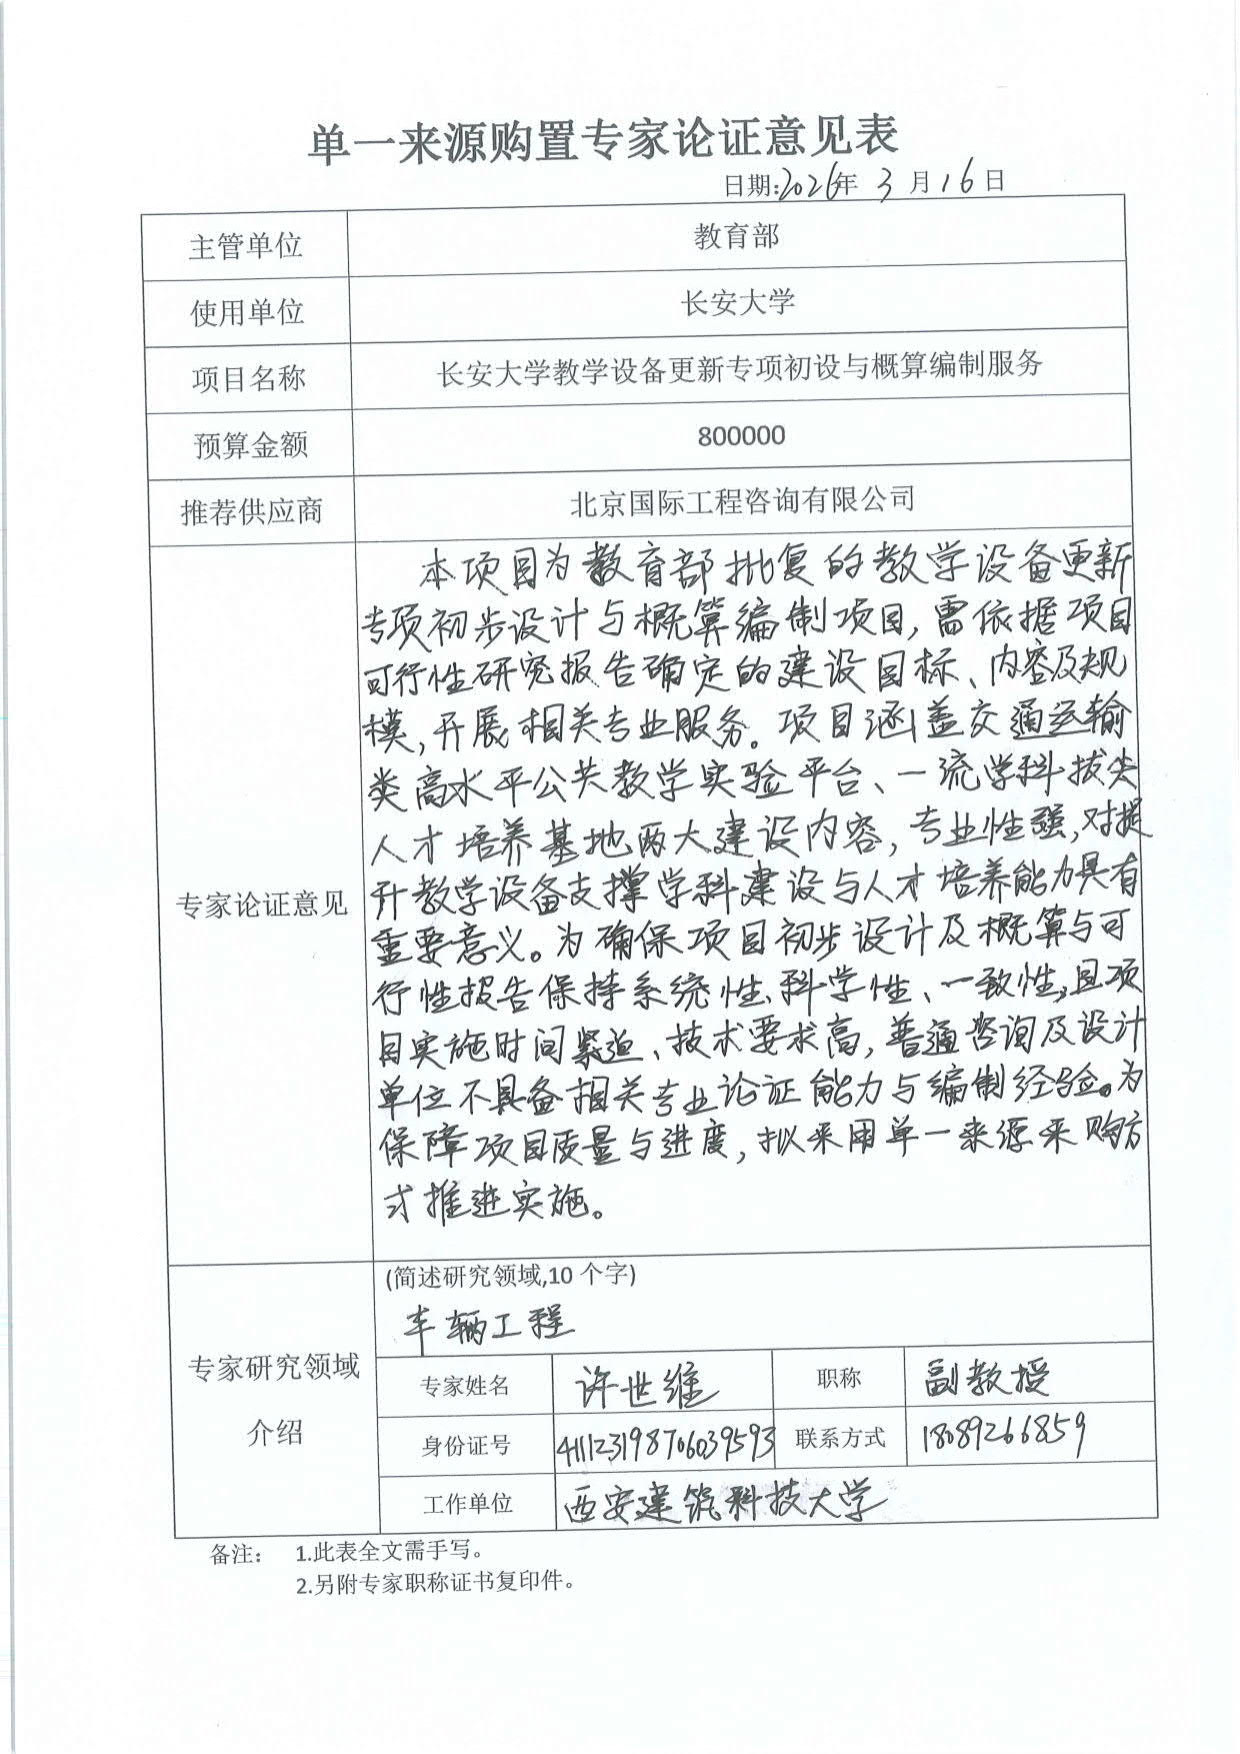 单一来源购置专家论证意见表
日期:2026年 3 月 16 日
主管单位 教育部
使用单位 长安大学
项目名称 长安大学教学设备更新专项初设与概算编制服务
预算金额 800000
推荐供应商 北京国际工程咨询有限公司
专家论证意见
本项目为教育部批复的教学设备更新
专项初步设计与概算编制项目,需依据项目
可行性研究报告确定的建设目标、内容及规
模,开展相关专业服务。项目涵盖交通运输
类高水平公共教学实验平台、一流学科拔尖
人才培养基地两大建设内容,专业性强,对提
升教学设备支撑学科建设与人才培养能力具有
重要意义。为确保项目初步设计及概算与可
行性报告保持系统性、科学性、一致性,且项
目实施时间紧迫、技术要求高,普通咨询及设计
单位不具备相关专业论证能力与编制经验。为
保障项目质量与进度,拟采用单一来源采购方
式推进实施。
专家研究领域
介绍
(简述研究领域,10 个字)
车辆工程
专家姓名 许世维 职称 副教授
身份证号 411123198706039593 联系方式 18089266859
工作单位 西安建筑科技大学
备注: 1.此表全文需手写。
2.另附专家职称证书复印件。